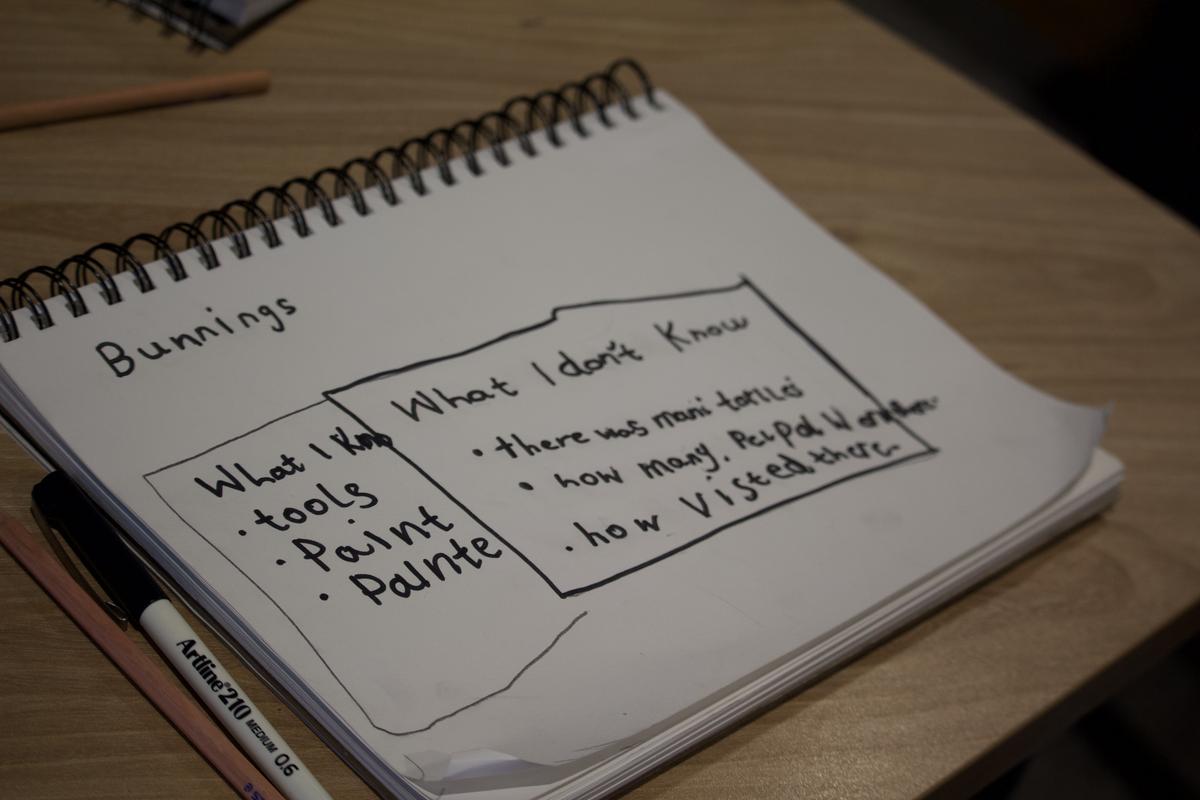 Bunnings
What I Kno
• tools
• Paint
• Palnte
What I don't Know
• there was mani
• how many. Pel Pal
• how Visted there.
Artline 210 MEDIUM 0.6